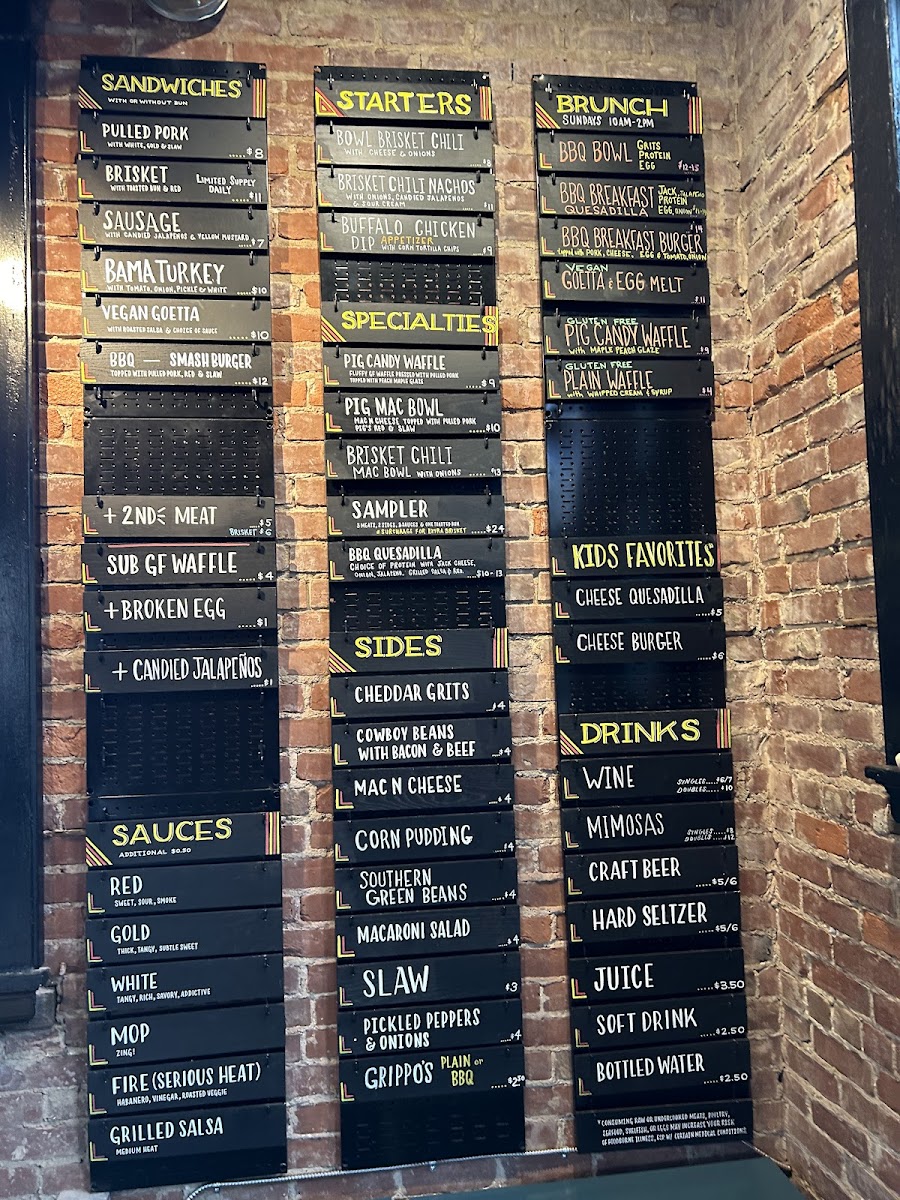 SANDWICHES
WITH OR WITHOUT BUN
PULLED PORK
WITH WHITE, GOLD & SLAW
.....$8
BRISKET
WITH TOASTED BUN & RED
LIMITED SUPPLY
DAILY
.....$11
SAUSAGE
WITH CANDIED JALAPEÑOS & YELLOW MUSTARD
....$7
BAMA TURKEY
WITH TOMATO, ONION, PICKLE & WHITE
....$10
VEGAN GOETTA
WITH ROASTED SALSA & CHOICE OF SAUCE
.....$10
BBQ — SMASH BURGER
TOPPED WITH PULLED PORK, RED & SLAW
.....$12
+ 2ND MEAT
.....$5
BRISKET $6
SUB GF WAFFLE
.....$4
+ BROKEN EGG
.....$1
+ CANDIED JALAPEÑOS
.....$1
SAUCES
ADDITIONAL $0.50
RED
SWEET, SOUR, SMOKE
GOLD
THICK, TANGY, SUBTLE SWEET
WHITE
TANGY, RICH, SAVORY, ADDICTIVE
MOP
ZING!
FIRE (SERIOUS HEAT)
HABANERO, VINEGAR, ROASTED VEGGIE
GRILLED SALSA
MEDIUM HEAT
STARTERS
BOWL BRISKET CHILI
WITH CHEESE & ONIONS
....$8
BRISKET CHILI NACHOS
WITH ONIONS, CANDIED JALAPENOS
& SOUR CREAM
....$11
BUFFALO CHICKEN
DIP APPETIZER
WITH CORN TORTILLA CHIPS
....$9
SPECIALTIES
PIG CANDY WAFFLE
FLUFFY GF WAFFLE PRESSED WITH PULLED PORK
TOPPED WITH PEACH MAPLE GLAZE
.....$9
PIG MAC BOWL
MAC N CHEESE TOPPED WITH PULLED PORK
PIG'S RED & SLAW
.....$10
BRISKET CHILI
MAC BOWL WITH ONIONS
.....$13
SAMPLER
3 MEATS, 2 SIDES, 2 SAUCES & ONE TOASTED BUN
SURCHARGE FOR EXTRA BRISKET
.....$24
BBQ QUESADILLA
CHOICE OF PROTEIN WITH JACK CHEESE,
ONION, JALAPENO, GRILLED SALSA & RED
....$10-13
SIDES
CHEDDAR GRITS
....$4
COWBOY BEANS
WITH BACON & BEEF
....$4
MAC N CHEESE
....$4
CORN PUDDING
....$4
SOUTHERN
GREEN BEANS
....$4
MACARONI SALAD
....$4
SLAW
$3
PICKLED PEPPERS
& ONIONS
....$4
GRIPPO'S PLAIN or
BBQ
.....$2.50
BRUNCH
SUNDAYS 10AM-2PM
BBQ BOWL GRITS
PROTEIN
EGG
$12-15
BBQ BREAKFAST
QUESADILLA
JACK, JALAPENO
PROTEIN
EGG, ONION
$14
BBQ BREAKFAST BURGER
PORK, CHEESE, EGG & TOMATO, ONION
VEGAN
GOETTA & EGG MELT
$11
GLUTEN FREE
PIG CANDY WAFFLE
with MAPLE PEACH GLAZE
$9
GLUTEN FREE
PLAIN WAFFLE
with WHIPPED CREAM & SYRUP
$4
KIDS FAVORITES
CHEESE QUESADILLA
.....$5
CHEESE BURGER
.....$6
DRINKS
WINE
SINGLES.....$6/7
DOUBLES.....$10
MIMOSAS
SINGLES.....$8
DOUBLES.....$12
CRAFT BEER
.....$5/6
HARD SELTZER
.....$5/6
JUICE
.....$3.50
SOFT DRINK
.....$2.50
BOTTLED WATER
.....$2.50
*CONSUMING RAW OR UNDERCOOKED MEATS, POULTRY,
SEAFOOD, SHELLFISH, OR EGGS MAY INCREASE YOUR RISK
OF FOODBORNE ILLNESS, ESP W/ CERTAIN MEDICAL CONDITIONS